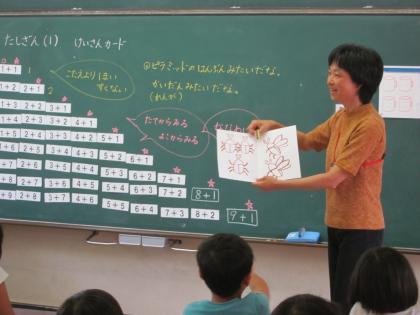 たしざん(1) けいさんカード
1+1 1
1+2 2+1 2
2+2 3+1
2+3 3+2 4+1
2+4 3+3 4+2 5+1
2+5 3+4 4+3 5+2 6+1
2+6 3+5 4+4 5+3 6+2 7+1
2+7 3+6 4+5 5+4 6+3 7+2 8+1
2+8 3+7 4+6 5+5 6+4 7+3 8+2 9+1
こたえより1まい
すくない
◎ピラミッドのはんぶんみたいだな。
かいだんみたいだな。
(れんが)
たてからみる
よこからみる